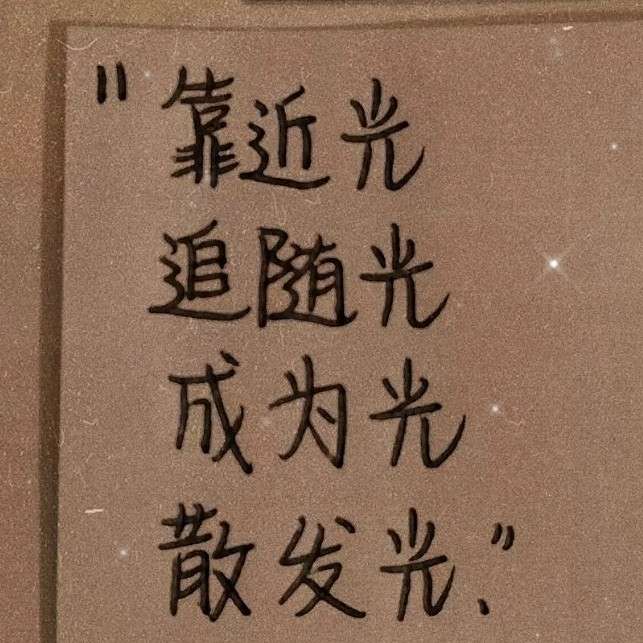 "靠近光
追随光
成为光
散发光、"